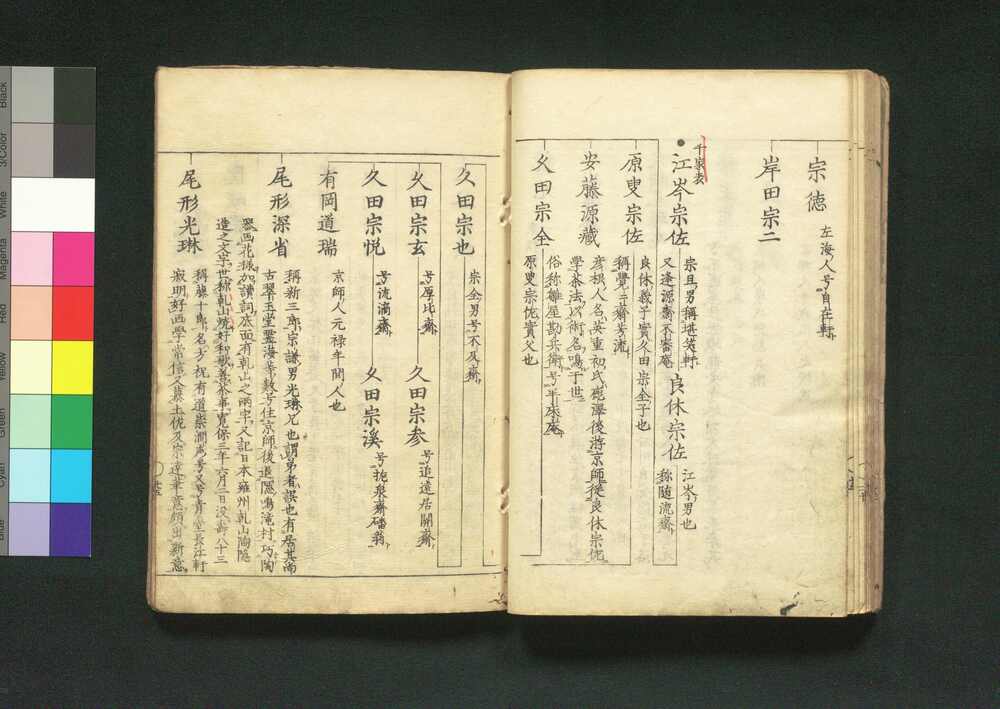 宗徳
左海人号自在軒
岸田宗二
千家表
江岑宗佐
宗旦男稱堪笑軒
又逢源斎不審庵
良休宗佐
江岑男也
称随流斎
原叟宗佐
良休義子實久田宗全子也
稱覺々斎
安藤源蔵
彦根人名
学茶法以術名鳴于世
久田宗全
俗称雛屋勘兵衛号半床庵
原叟宗佐實父也
久田宗也
宗全男号不及斎
久田宗玄
号厚比斎
久田宗参
号追遠居開斎
久田宗悦
号流滴斎
久田宗溪
号挹泉斎磻翁
有岡道瑞
京師人元禄年間人也
尾形深省
稱新三郎宗謙男光琳兄也謂弟者誤也有居其尚
古翠玉堂霊海等數号住京師後退隠鳴滝村巧陶
器画花様加讃詞底面有乾山之兩字又記日本雍州乾山陶隠
造之文字世称乾山焼好和歌善茶事寛保三年六月二日没壽八十三
尾形光琳
稱藤十郎名方祝有道崇澗
寂明好画学常信又慕土佐及宗達筆意頗出新意
Black
3/Color
White
Magenta
Red
Yellow
Green
Cyan
Blue